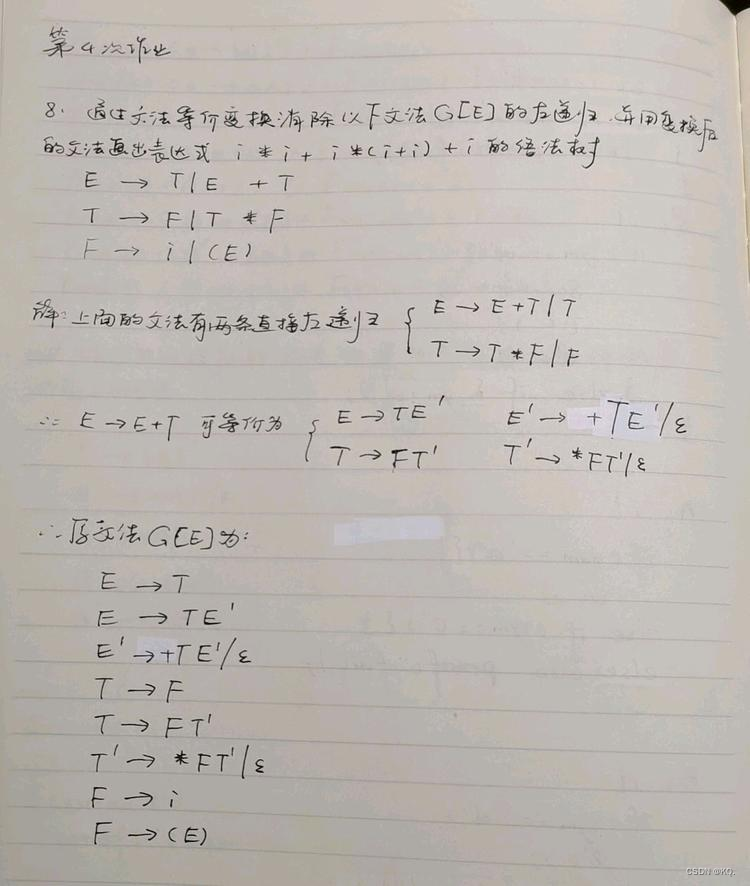 第4次作业
8. 通过文法等价变换消除以下文法G[E]的左递归,并用变换后
的文法画出表达式 i * i + i *(i+i) + i 的语法树
E → T | E + T
T → F | T * F
F → i | (E)
解:上面的文法有两条直接左递归 { E → E+T | T
T → T * F | F
∵ E → E+T 可等价为 { E → TE' E' → +TE'/ε
T → FT' T' → *FT'/ε
∴ 原文法G[E]为:
E → T
E → TE'
E' → +TE'/ε
T → F
T → FT'
T' → *FT'|ε
F → i
F → (E)
CSDN @KQ: